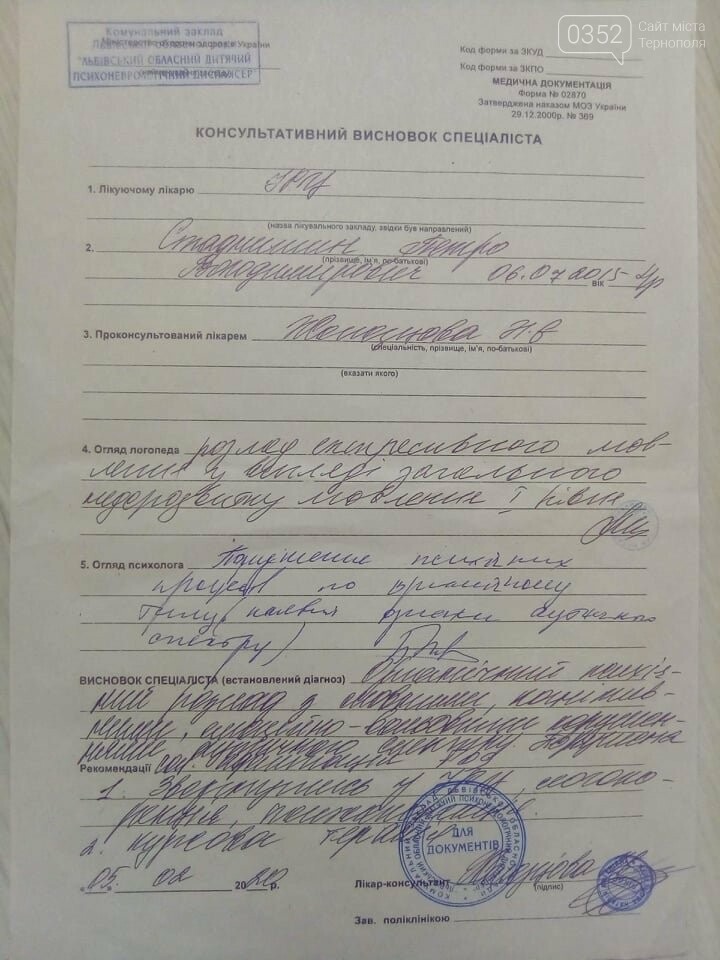 0352 Сайт міста
Тернополя
Комунальний заклад
Міністерство охорони здоров'я України
ЛЬВІВСЬКИЙ ОБЛАСНИЙ ДИТЯЧИЙ
ПСИХОНЕВРОЛОГІЧНИЙ ДИСПАНСЕР
Код форми за ЗКУД
Код форми за ЗКПО
МЕДИЧНА ДОКУМЕНТАЦІЯ
Форма № 02870
Затверджена наказом МОЗ України
29.12.2000р. № 369
КОНСУЛЬТАТИВНИЙ ВИСНОВОК СПЕЦІАЛІСТА
1. Лікуючому лікарю
(назва лікувального закладу, звідки був направлений)
2. Петро
(прізвище, ім'я, по-батькові)
Володимирович 06.07.2015 вік
3. Проконсультований лікарем Н.В
(спеціальність, прізвище, ім'я, по-батькові)
(вказати якого)
4. Огляд логопеда розлад експресивного мов-
лення у вигляді загального
недорозвитку мовлення І рівня
5. Огляд психолога Порушення психічних
процесів по органічному
типу наявні ознаки аутичного
спектру)
ВИСНОВОК СПЕЦІАЛІСТА (встановлений діагноз) Органічний психіч-
ний розлад з мовними, когнітив-
ними, емоційно-вольовими порушен-
нями аутичного спектру.
Рекомендації
1. у
2. курсова терапія
ДЛЯ
ДОКУМЕНТІВ
05. 02 2020 р.
Лікар-консультант
(підпис)
Зав. поліклінікою